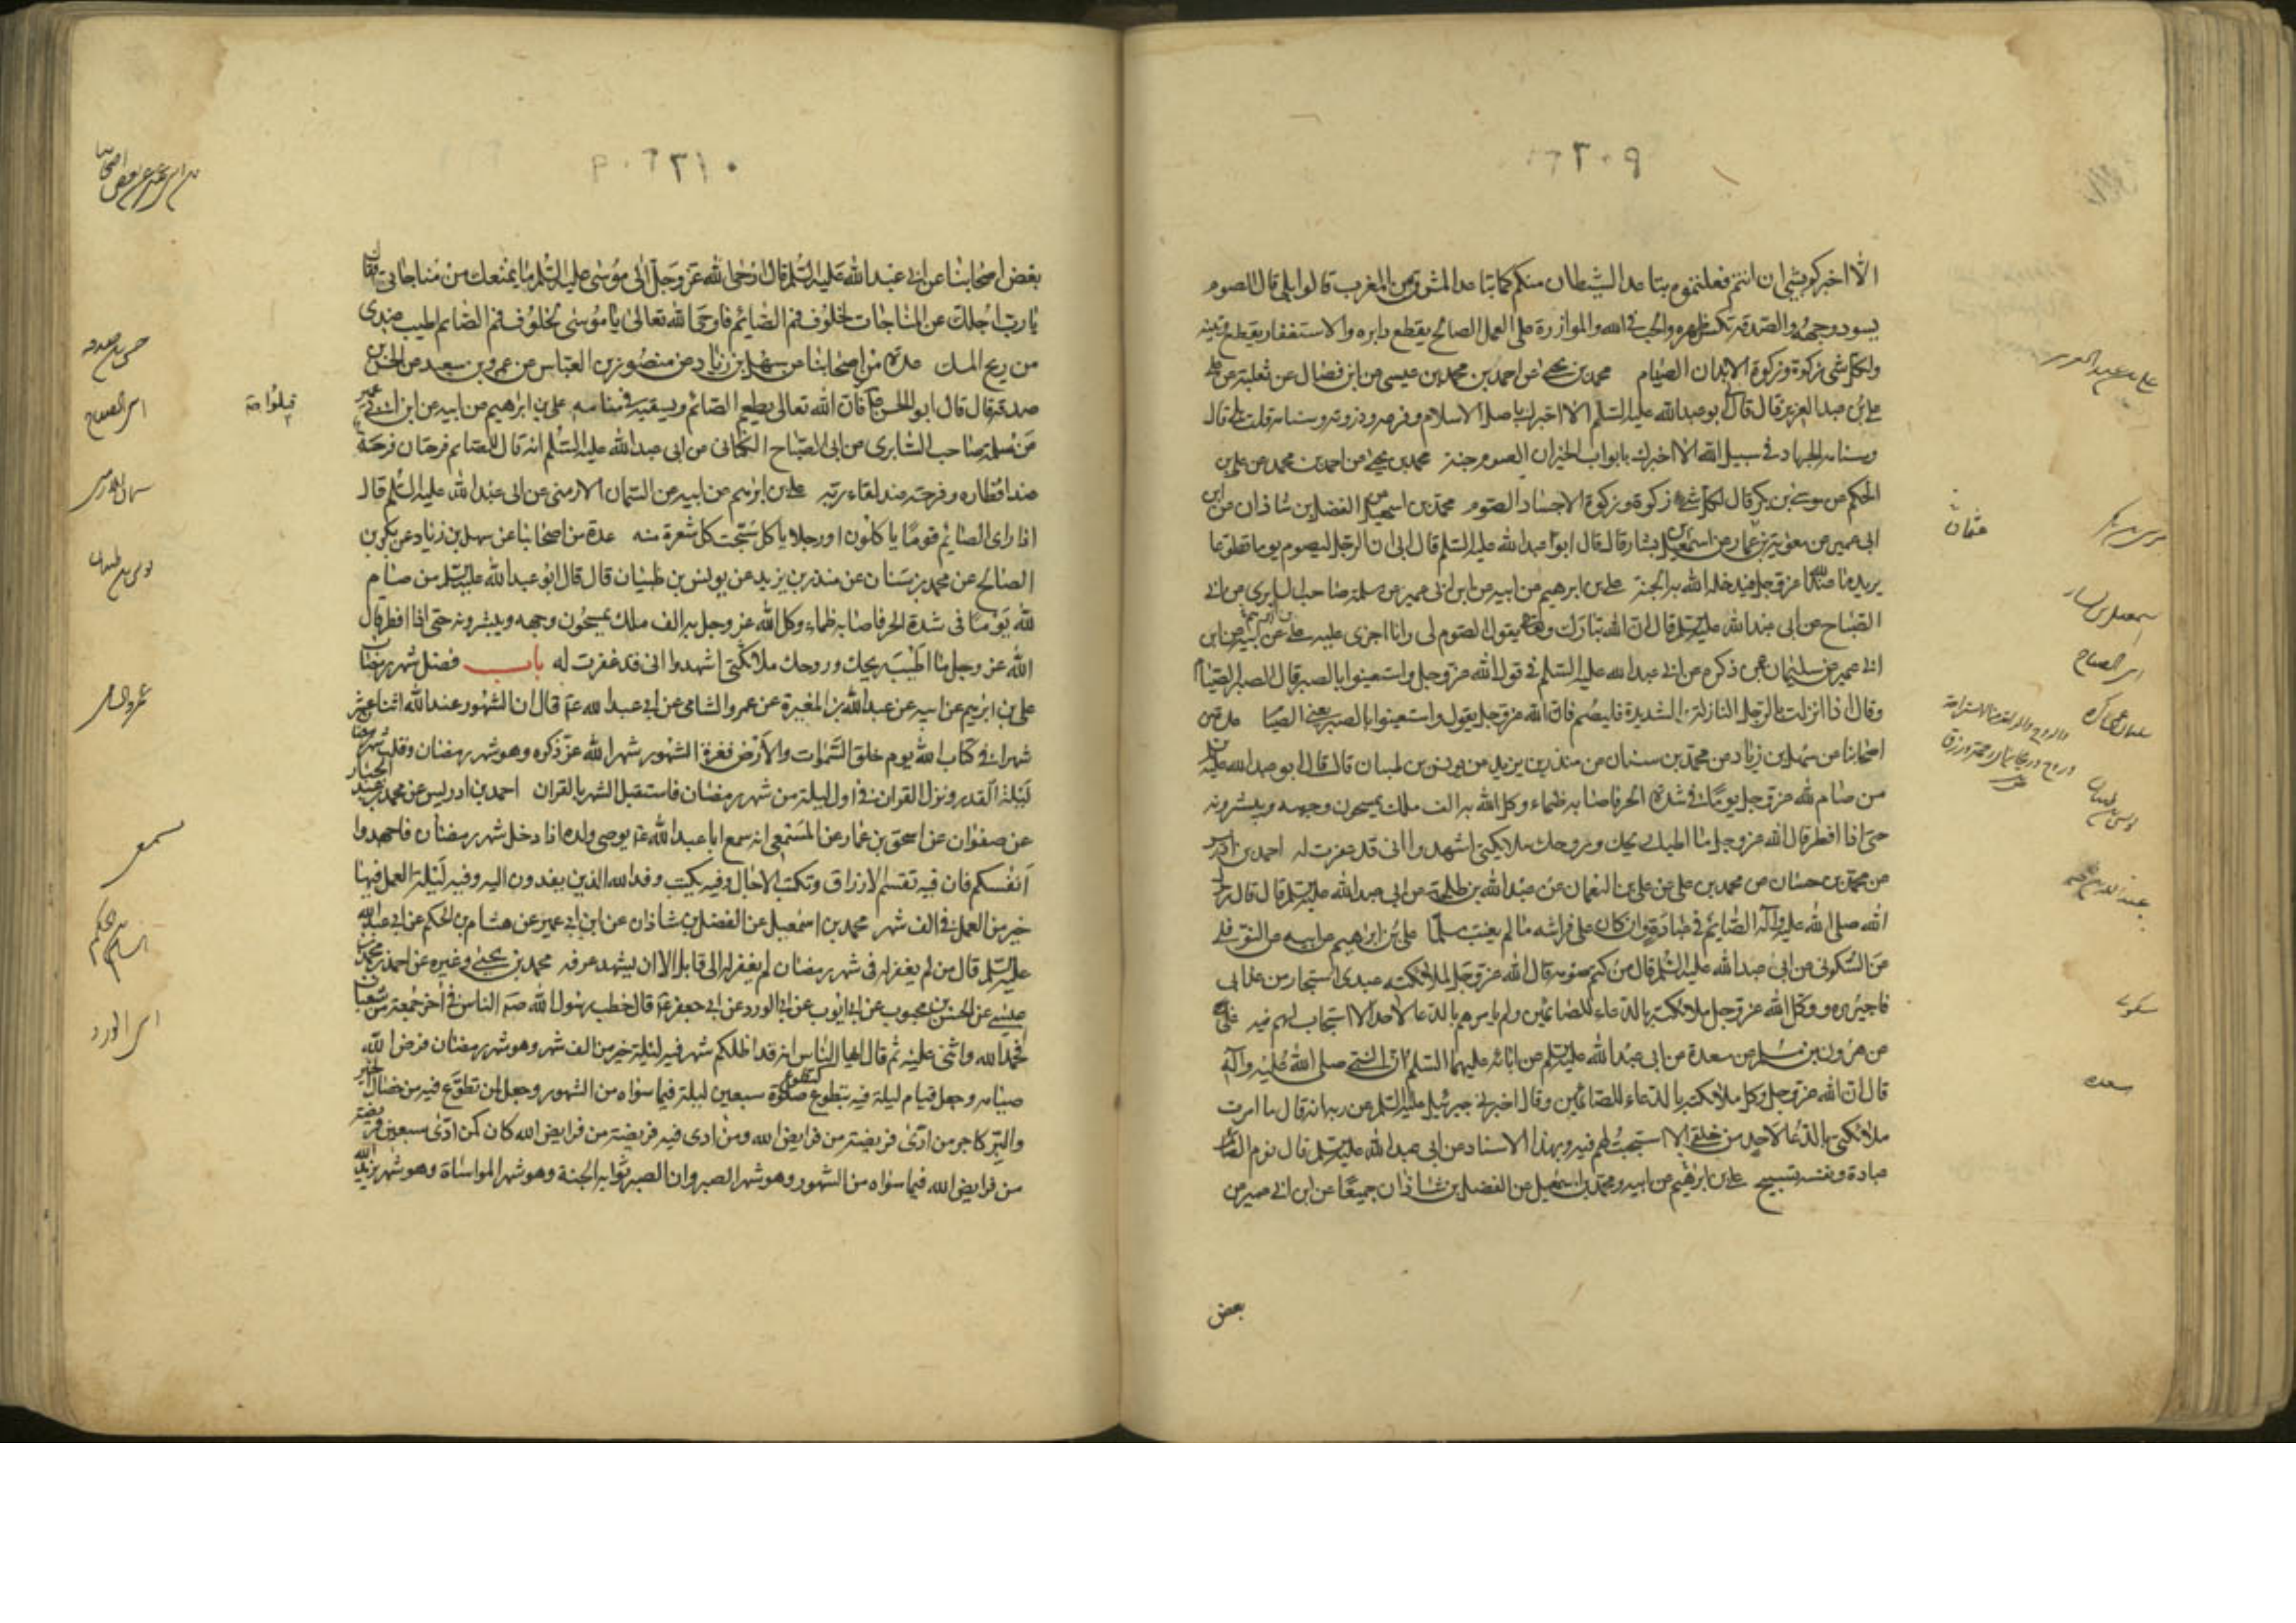 ٢٠٩
الا اخبركم بشئ ان انتم فعلتموه تباعد الشيطان منكم كما تباعد المشرق من المغرب قالوا بلى قال الصوم
يسود وجهه والصدقة تكسر ظهره والحب فى الله والموازرة على العمل الصالح يقطع دابره والاستغفار يقطع وتينه
ولكل شئ زكوة وزكوة الابدان الصيام محمد بن يحيى عن احمد بن محمد بن عيسى عن ابن فضال عن ثعلبة عن
على بن عبد العزيز قال قال ابو عبد الله عليه السلم الا اخبرك باصل الاسلام وفرعه وذروته وسنامه قلت بلى قال
وسنامه الجهاد فى سبيل الله الا اخبرك بابواب الخير ان الصوم جنة محمد بن يحيى عن احمد بن محمد عن على بن
الحكم عن موسى بن بكر قال لكل شئ زكوة وزكوة الاجساد الصوم محمد بن اسمعيل عن الفضل بن شاذان عن ابن
ابى عمير عن معوية بن عمار عن اسمعيل بن يشار قال قال ابو عبد الله عليه السلم قال ابى ان الرجل ليصوم يوما تطوعا
يريد ما عند الله عز وجل فيدخله الله به الجنة على بن ابرهيم عن ابيه عن ابن ابى عمير عن سلمة صاحب السابرى عن ابى
الصباح عن ابى عبد الله عليه السلم قال ان الله تبارك وتعالى يقول الصوم لى وانا اجزى عليه على عن ابيه عن ابن
ابى عمير عن سليمان عمن ذكره عن ابى عبد الله عليه السلم فى قول الله عز وجل واستعينوا بالصبر قال الصبر الصيام
وقال اذا نزلت بالرجل النازلة الشديدة فليصم فان الله عز وجل يقول واستعينوا بالصبر يعنى الصيام عدة من
اصحابنا عن سهل بن زياد عن محمد بن سنان عن منذر بن يزيد عن يونس بن ظبيان قال قال ابو عبد الله عليه
من صام لله عز وجل يوما فى شدة الحر فاصابه ظماء وكل الله به الف ملك يمسحون وجهه ويبشرونه
حتى اذا افطر قال الله عز وجل ما اطيب ريحك وروحك ملائكتى اشهدوا انى قد غفرت له احمد بن ادريس
عن محمد بن حسان عن محمد بن على عن على بن النعمان عن عبد الله بن طلحة عن ابى عبد الله عليه السلم قال قال رسول
الله صلى الله عليه وآله الصائم فى عبادة وان كان على فراشه ما لم يغتب مسلما على بن ابراهيم عن ابيه عن النوفلى
عن السكونى عن ابى عبد الله عليه السلم قال من كتم صومه قال الله عز وجل لملائكته عبدى استجار من عذابى
فاجيروه ووكل الله عز وجل ملائكته بالدعاء للصائمين ولم يامرهم بالدعاء لاحد الا استجاب لهم فيه على
عن هرون بن مسلم عن مسعدة عن ابى عبد الله عليه السلم عن ابائه عليهم السلم ان النبى صلى الله عليه وآله
قال ان الله عز وجل وكل ملائكته بالدعاء للصائمين وقال اخبرنى جبرئيل عليه السلم عن ربه انه قال ما امرت
ملائكتى بالدعاء لاحد من خلقى الا استجبت لهم فيه وبهذا الاسناد عن ابى عبد الله عليه السلم قال نوم الصائم
عبادة ونفسه تسبيح على بن ابرهيم عن ابيه ومحمد بن اسمعيل عن الفضل بن شاذان جميعا عن ابن ابى عمير عن
بعض
على بن عبد العزيز
عثمان
موسى بن بكر
اسمعيل بن يسار
ابى الصباح
يونس بن ظبيان
سكونى
مسعده
٢١٠
بعض اصحابنا عن ابى عبد الله عليه السلم قال اوحى الله عز وجل الى موسى عليه السلم ما يمنعك من مناجاتى فقال
يا رب اجلك عن المناجات لخلوف فم الصائم فاوحى الله تعالى يا موسى لخلوف فم الصائم اطيب عندى
من ريح المسك عدة من اصحابنا عن سهل بن زياد عن منصور بن العباس عن عمرو بن سعيد عن الحسن بن
صدقة قال قال ابو الحسن فان الله تعالى يطعم الصائم ويسقيه فى منامه على بن ابراهيم عن ابيه عن ابن ابى عمير
عن سلمة صاحب السابرى عن ابى الصباح الكنانى عن ابى عبد الله عليه السلم انه قال للصائم فرحتان فرحة
عند افطاره وفرحة عند لقاء ربه على بن ابرهيم عن ابيه عن السمان الارمنى عن ابى عبد الله عليه السلم قال
اذا راى الصائم قوما ياكلون او رجلا ياكل سبحت كل شعرة منه عدة من اصحابنا عن سهل بن زياد عن بكر بن
الصالح عن محمد بن سنان عن منذر بن يزيد عن يونس بن ظبيان قال قال ابو عبد الله عليه السلم من صام
لله يوما فى شدة الحر فاصابه ظماء وكل الله عز وجل به الف ملك يمسحون وجهه ويبشرونه حتى اذا افطر قال
الله عز وجل ما اطيب ريحك وروحك ملائكتى اشهدوا انى قد غفرت له باب فضل شهر رمضان
على بن ابرهيم عن ابيه عن عبد الله بن المغيرة عن عمرو الشامى عن ابى عبد الله ع قال ان الشهور عند الله اثنا عشر
شهرا فى كتاب الله يوم خلق السموات والارض فغرة الشهور شهر الله عز ذكره وهو شهر رمضان وقلب شهر رمضان
ليلة القدر ونزل القران فى اول ليلة من شهر رمضان فاستقبل الشهر بالقران احمد بن ادريس عن محمد بن عبد الجبار
عن صفوان عن اسحق بن عمار عن المسمعى انه سمع ابا عبد الله ع يوصى ولده اذا دخل شهر رمضان فاجهدوا
انفسكم فان فيه تقسم الارزاق وتكتب الاجال وفيه يكتب وفد الله الذين يفدون اليه وفيه ليلة العمل فيها
خير من العمل فى الف شهر محمد بن اسمعيل عن الفضل بن شاذان عن ابن ابى عمير عن هشام بن الحكم عن ابى عبد الله
عليه السلم قال من لم يغفر له فى شهر رمضان لم يغفر له الى قابل الا ان يشهد عرفة محمد بن يحيى وغيره عن احمد بن محمد بن
عيسى عن الحسن بن محبوب عن ابى ايوب عن ابى الورد عن ابى جعفر ع قال خطب رسول الله ص الناس فى آخر جمعة من شعبان
فحمد الله واثنى عليه ثم قال ايها الناس انه قد اظلكم شهر فيه ليلة خير من الف شهر وهو شهر رمضان فرض الله
صيامه وجعل قيام ليلة فيه بتطوع صلوة كتطوع سبعين ليلة فيما سواه من الشهور وجعل لمن تطوع فيه من خصال الخير
والبر كاجر من ادى فريضة من فرايض الله ومن ادى فيه فريضة من فرايض الله كان كمن ادى سبعين فريضة
من فرايض الله فيما سواه من الشهور وهو شهر الصبر وان الصبر ثوابه الجنة وهو شهر المواساة وهو شهر يزيد الله
حسن بن صدقه
ابى الصباح
يونس بن ظبيان
عمرو الشامى
مسمع
هشام بن حكم
ابى الورد